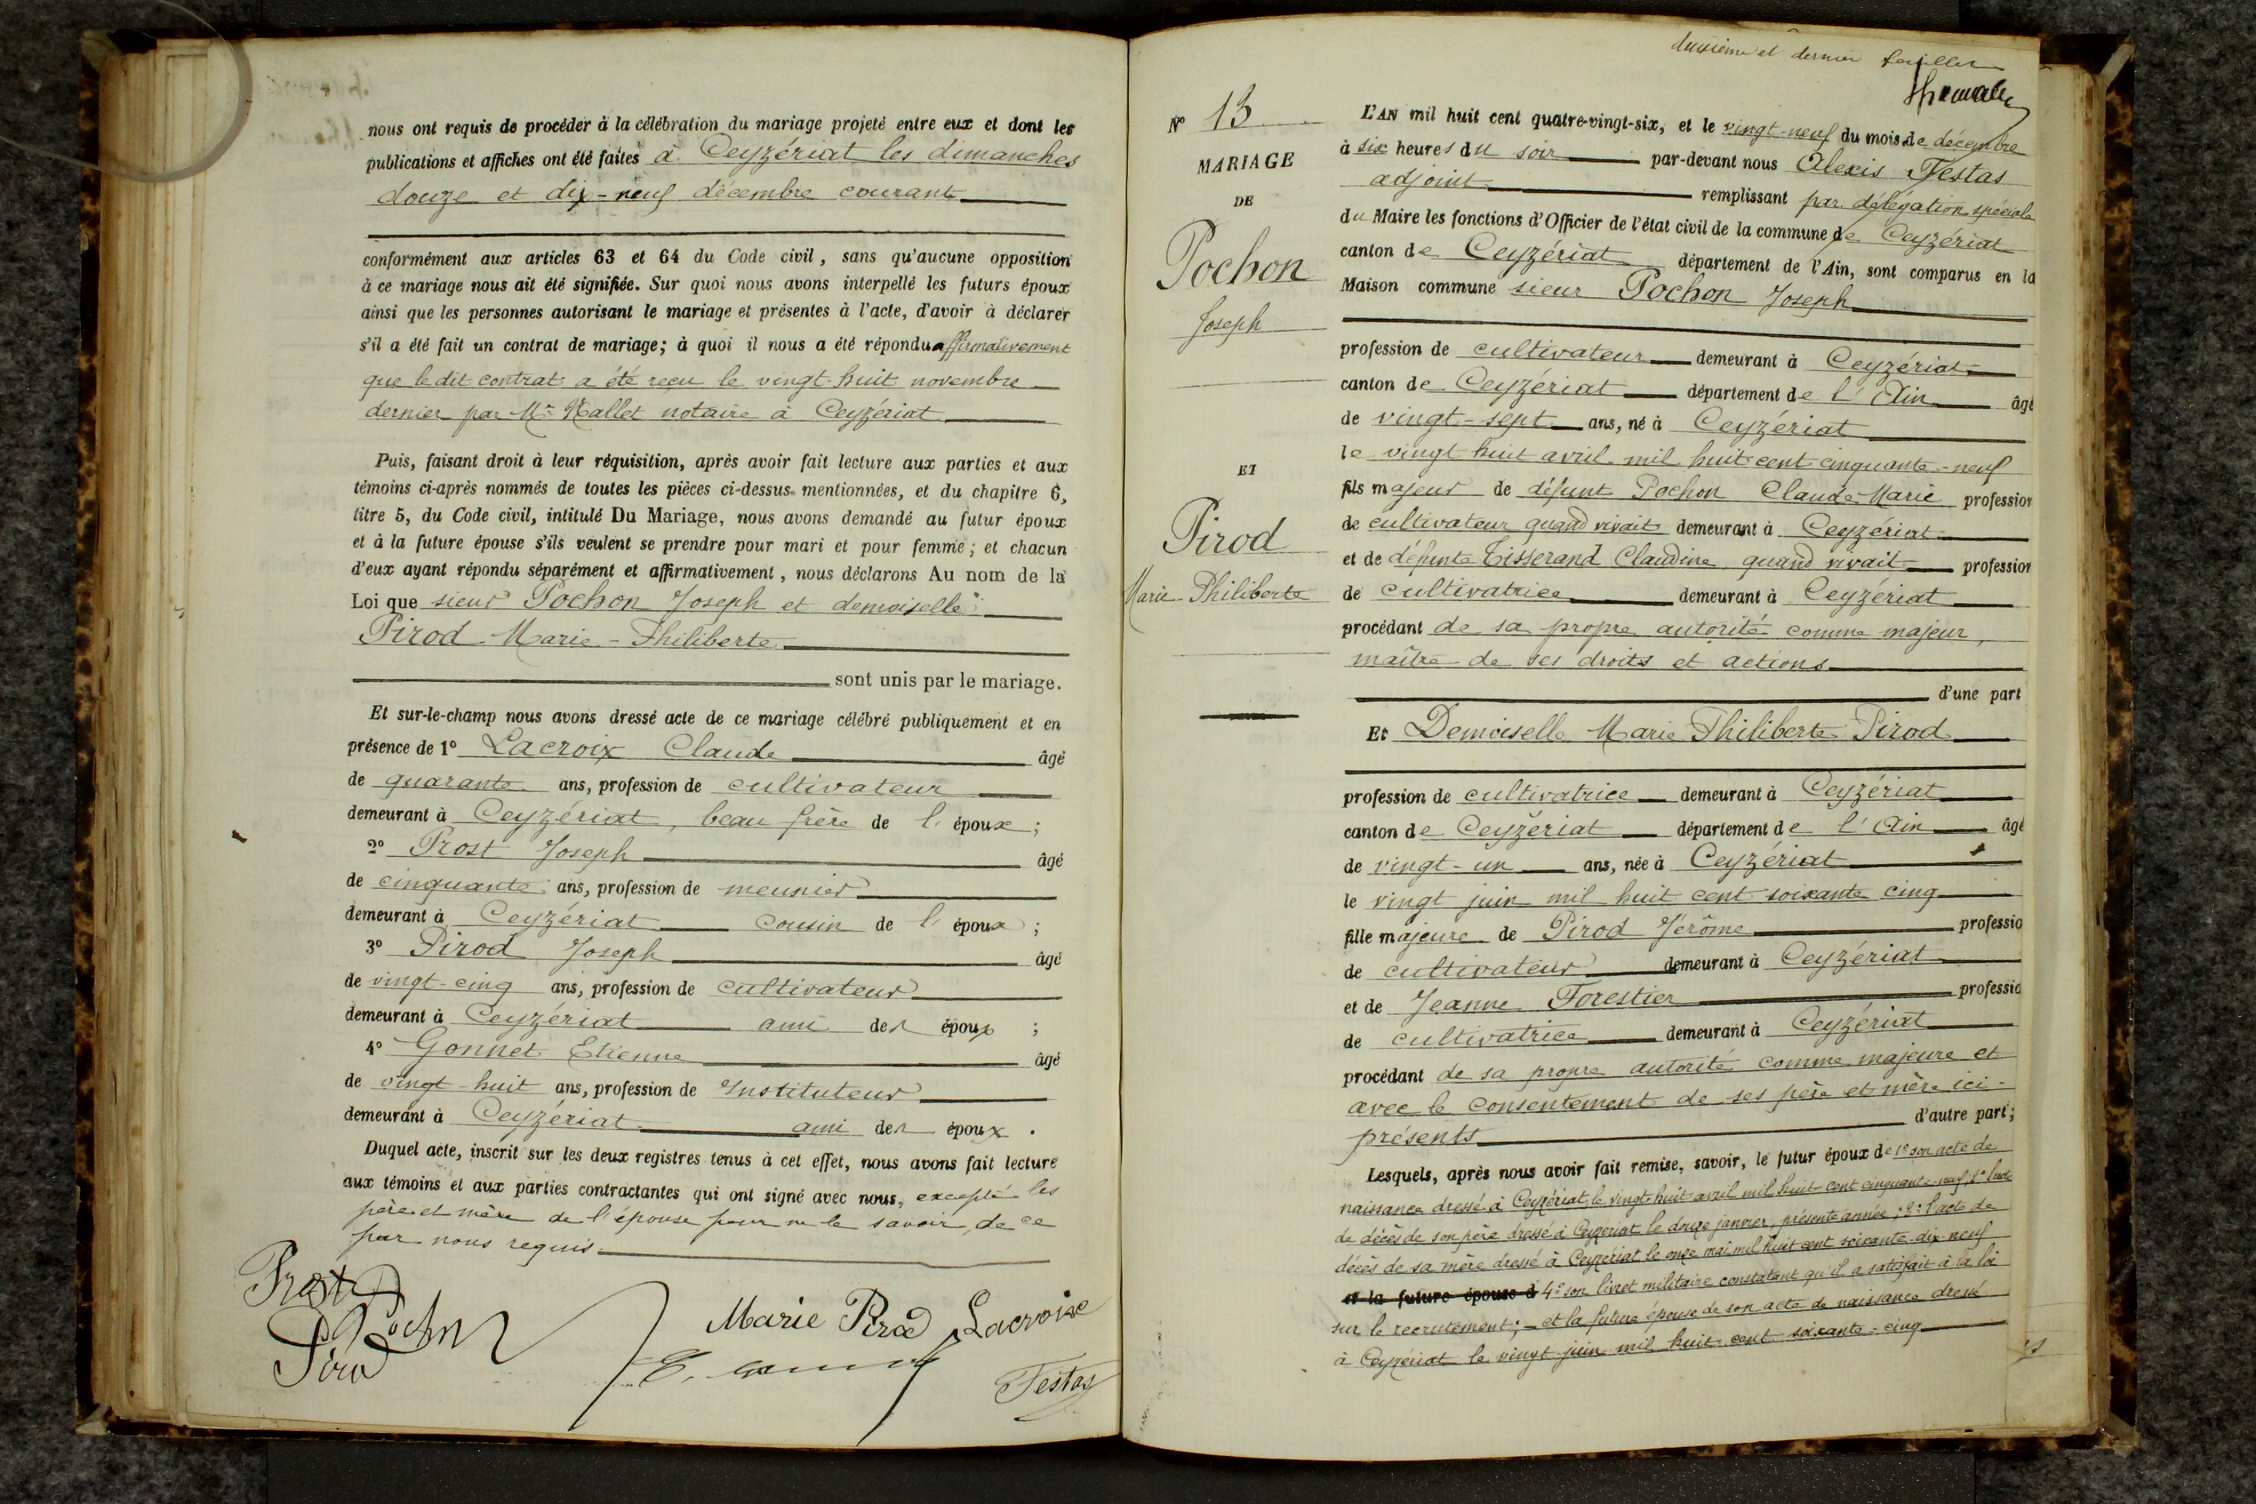 nous ont requis de procéder à la célébration du mariage projeté entre eux et dont les
publications et affiches ont été faites à Ceyzériat les dimanches
douze et dix-neuf décembre courant
conformément aux articles 63 et 64 du Code civil, sans qu'aucune opposition
à ce mariage nous ait été signifiée. Sur quoi nous avons interpellé les futurs époux
ainsi que les personnes autorisant le mariage et présentes à l'acte, d'avoir à déclarer
s'il a été fait un contrat de mariage; à quoi il nous a été répondu affirmativement
que le dit contrat a été reçu le vingt-huit novembre
dernier par Me Mallet notaire à Ceyzériat
Puis, faisant droit à leur réquisition, après avoir fait lecture aux parties et aux
témoins ci-après nommés de toutes les pièces ci-dessus mentionnées, et du chapitre 6,
titre 5, du Code civil, intitulé Du Mariage, nous avons demandé au futur époux
et à la future épouse s'ils veulent se prendre pour mari et pour femme; et chacun
d'eux ayant répondu séparément et affirmativement, nous déclarons Au nom de la
Loi que sieur Pochon Joseph et demoiselle
Pirod Marie-Philiberte
sont unis par le mariage.
Et sur-le-champ nous avons dressé acte de ce mariage célébré publiquement et en
présence de 1° Lacroix Claude âgé
de quarante ans, profession de cultivateur
demeurant à Ceyzériat, beau frère de l'époux;
2° Prost Joseph âgé
de cinquante ans, profession de meunier
demeurant à Ceyzériat cousin de l'époux;
3° Pirod Joseph âgé
de vingt-cinq ans, profession de cultivateur
demeurant à Ceyzériat ami des époux;
4° Gonnet Etienne âgé
de vingt-huit ans, profession de Instituteur
demeurant à Ceyzériat ami des époux.
Duquel acte, inscrit sur les deux registres tenus à cet effet, nous avons fait lecture
aux témoins et aux parties contractantes qui ont signé avec nous, excepté les
père et mère de l'épouse pour ne le savoir, de ce
par nous requis
Prost
Pochon
Pirod
Marie Pirod
Lacroix
Festas
deuxième et dernier feuillet
N° 13
MARIAGE
DE
Pochon
Joseph
ET
Pirod
Marie-Philiberte
L'AN mil huit cent quatre-vingt-six, et le vingt-neuf du mois de décembre
à six heures du soir par-devant nous Alexis Festas
adjoint remplissant par délégation spéciale
du Maire les fonctions d'Officier de l'état civil de la commune de Ceyzériat
canton de Ceyzériat département de l'Ain, sont comparus en la
Maison commune sieur Pochon Joseph
profession de cultivateur demeurant à Ceyzériat
canton de Ceyzériat département de l'Ain âgé
de vingt-sept ans, né à Ceyzériat
le vingt huit avril mil huit cent cinquante-neuf
fils majeur de défunt Pochon Claude-Marie profession
de cultivateur quand vivait demeurant à Ceyzériat
et de défunte Tisserand Claudine, quand vivait profession
de cultivatrice demeurant à Ceyzériat
procédant de sa propre autorité comme majeur,
maître de ses droits et actions
d'une part
Et Demoiselle Marie Philiberte Pirod
profession de cultivatrice demeurant à Ceyzériat
canton de Ceyzériat département de l'Ain âgé
de vingt-un ans, née à Ceyzériat
le vingt juin mil huit cent soixante cinq
fille majeure de Pirod Jérôme professio
de cultivateur demeurant à Ceyzériat
et de Jeanne Forestier professio
de cultivatrice demeurant à Ceyzériat
procédant de sa propre autorité comme majeure et
avec le consentement de ses père et mère ici-
présents d'autre part;
Lesquels, après nous avoir fait remise, savoir, le futur époux de 1° son acte de
naissance dressé à Ceyzériat le vingt-huit avril mil huit cent cinquante-neuf, 2° l'acte
de décès de son père dressé à Ceyzériat le douze janvier, présente année; 3° l'acte de
décès de sa mère dressé à Ceyzériat le onze mai mil huit cent soixante-dix-neuf
et la future épouse d 4° son livret militaire constatant qu'il a satisfait à la loi
sur le recrutement; et la future épouse de son acte de naissance dressé
à Ceyzériat le vingt juin mil huit cent soixante-cinq